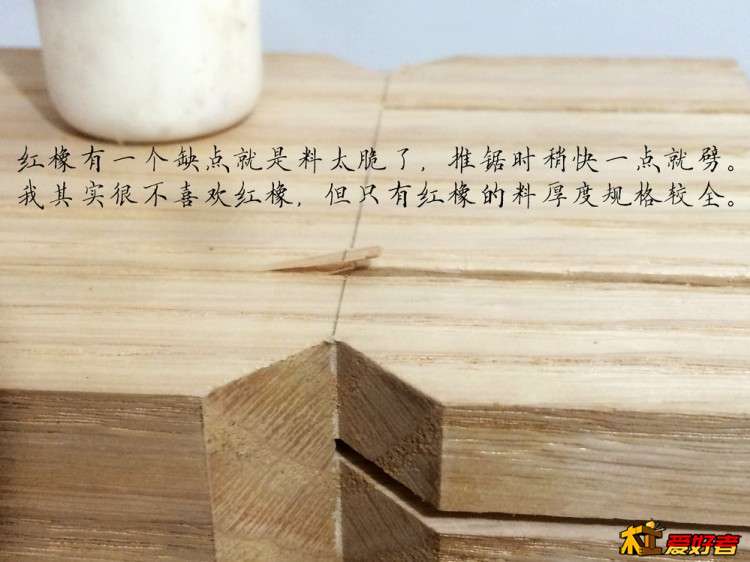 红橡有一个缺点就是料太脆了，推锯时稍快一点就劈。
我其实很不喜欢红橡，但只有红橡的料厚度规格较全。
木工爱好者